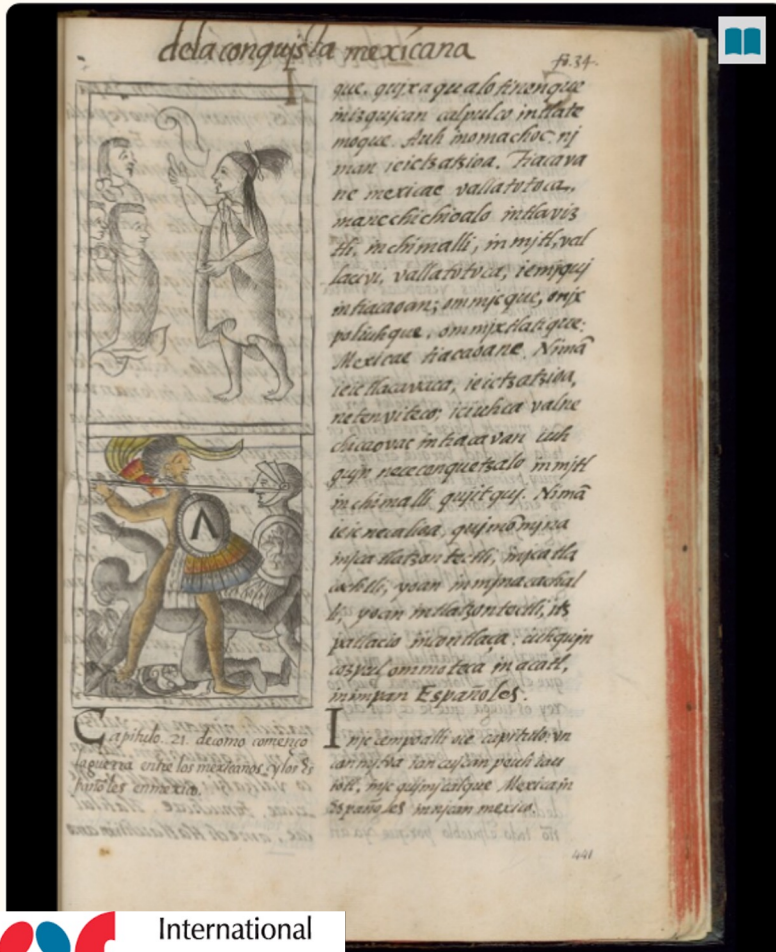 de la conquista mexicana
fo.34.
Capitulo. 21. de como començo
la guerra entre los mexicanos, y los Es
pañoles en mexico.
que, quixaqualo tinenque
mizquican calpulco in tlate
moque. Auh in omachoc. nj
man ie ic tzatzioa. Tiacava
ne mexicae vallatotoca,
ma nechichioalo in tlaviz
tli, in chimalli, in mjtl, val
laciuj, vallatotoca, ie mjquj
in tiacaoan; ommjcque, onjx
poliuhque, ommjxtlatique:
Mexicae tiacaoane. Nimã
ie ic tlacavaca, ie ic tzatzioa,
netenviteco; iciuhca valne
chicaovac in tiacavan iuh
in mjtl
in chimalli quitquj. Nimã
ie ic necalioa, quimõmjna
mjca tlatzontectli, mjca tla
cochtli, yoan in mjnacachal
li, yoan in tlatzontectli, itz
patlacio incontlaça: iuhquin
cozpul ommoteca in acatl,
in impan Españoles.
Inic cempoalli oce capitulo, vn
can mitoa
in quimjcalique Mexica in
Españoles in njcan mexico.
441
International